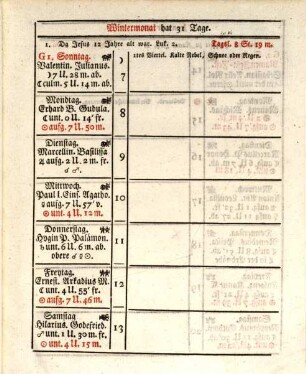 Wintermonat hat 31 Tage.
1. Da Jesus 12 Jahre alt war. Luk. 2. Tagsl. 8 St. 19 m.
G1, Sonntag.
Valentin. Julianus.
7 U. 28 m. ab.
culm. 5 U. 14 m. ab.
7
1tes Viertel. Kalte Nebel, Schnee oder Regen.
Montag.
Erhard B. Gudula.
unt. 0 U. 14' fr.
☉ aufg. 7 U. 50 m.
8
Dienstag.
Marcellin. Basilissa
♃ aufg. 2 U. 2 m. fr.
☌ ♂.
9
Mittwoch.
Paul 1. Einf. Agatho.
aufg. 7 U. 57' v.
☉ unt. 4 U. 12 m.
10
Donnerstag.
Hygin P. Palämon.
♄ unt. 6 U. 6 m. ab.
obere ☌ ☉.
11
Freytag.
Ernest. Arkadius M.
unt. 4 U. 55' fr.
☉ aufg. 7 U. 46 m.
12
Samstag
Hilarius. Godefried.
unt. 1 U. 30 m. fr.
☉ unt. 4 U. 15 m.
13